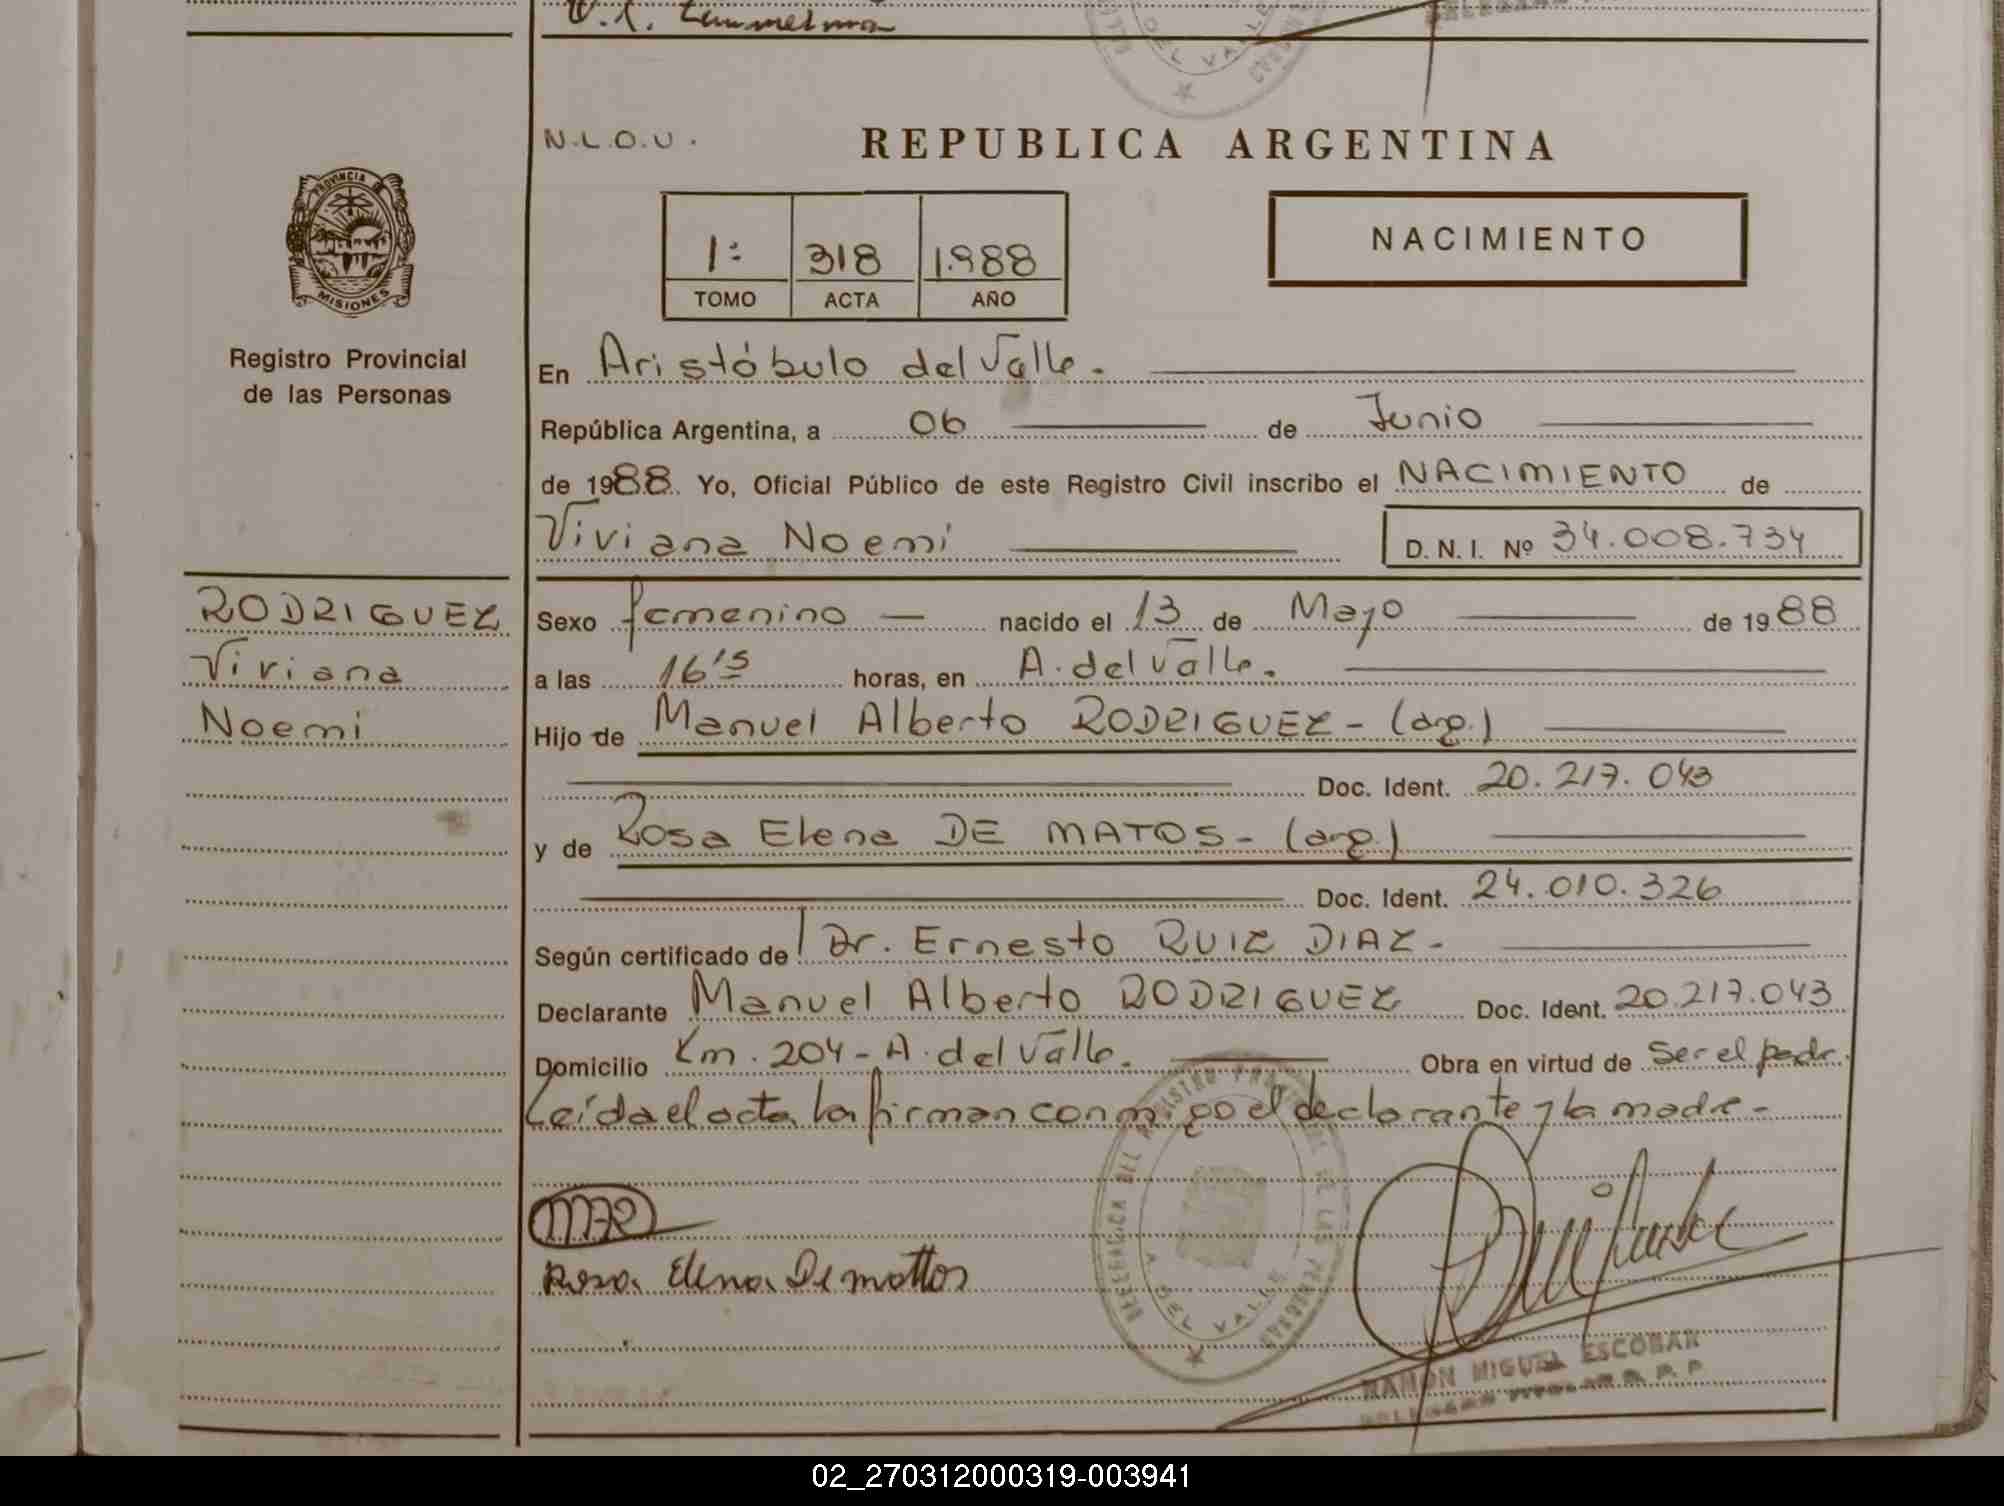 N.L.O.U.
REPUBLICA ARGENTINA
PROVINCIA DE
MISIONES
1: 318 1.988
TOMO ACTA AÑO
NACIMIENTO
Registro Provincial
de las Personas
En Aristóbulo del Valle.
República Argentina, a 06 de Junio
de 1988. Yo, Oficial Público de este Registro Civil inscribo el NACIMIENTO de
Viviana Noemi D.N.I. Nº 34.008.734
RODRIGUEZ
Viviana
Noemi
Sexo femenino — nacido el 13 de Mayo de 1988
a las 16'5 horas, en A. del Valle.
Hijo de Manuel Alberto RODRIGUEZ - (arg.)
Doc. Ident. 20.217.043
y de Rosa Elena DE MATOS - (arg.)
Doc. Ident. 24.010.326
Según certificado de Dr. Ernesto RUIZ DIAZ -
Declarante Manuel Alberto RODRIGUEZ Doc. Ident. 20.217.043
Domicilio Km. 204 - A. del Valle. Obra en virtud de Ser el padre.
Leída el acta, la firman conmigo el declarante y la madre -
MAR
Rosa Elena De mattos
A. DEL VALLE
RAMON MIGUEL ESCOBAR
02_270312000319-003941